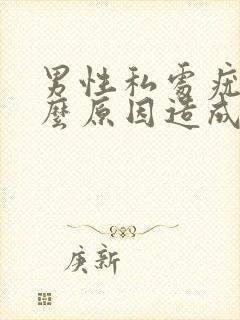 男性私处疣
麼原因造成
庚新